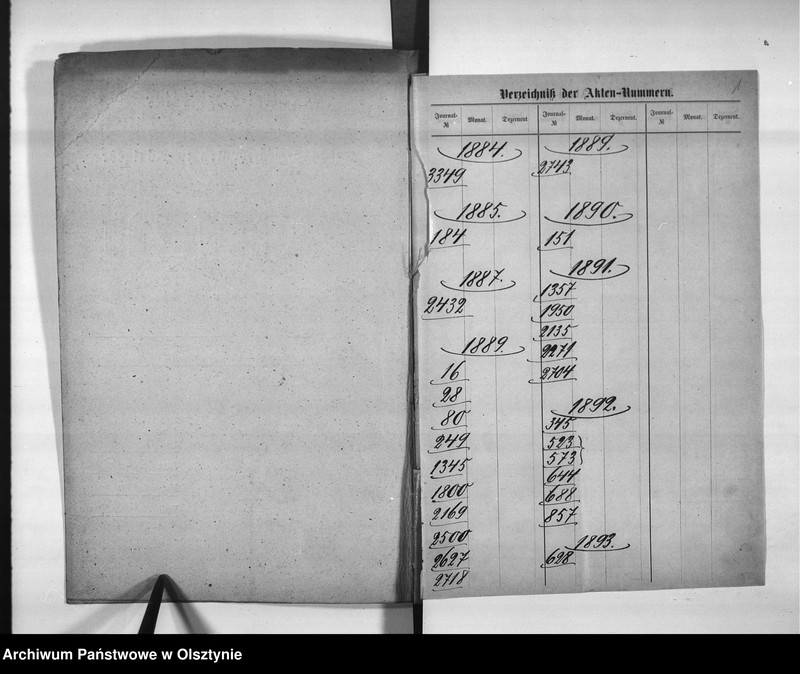 1
Verzeichniß der Akten-Nummern.
Journal- № Monat. Dezernent Journal- № Monat. Dezernent. Journal- № Monat. Dezernent.
1884.
3349
1885.
184
1887.
2432
1889.
16
28
80
249
1345
1800
2169
2500
2627
2718
1889.
2743
1890.
151
1891.
1357
1950
2135
2271
2704
1892.
345
523
573
644
688
857
1893.
628
Archiwum Państwowe w Olsztynie